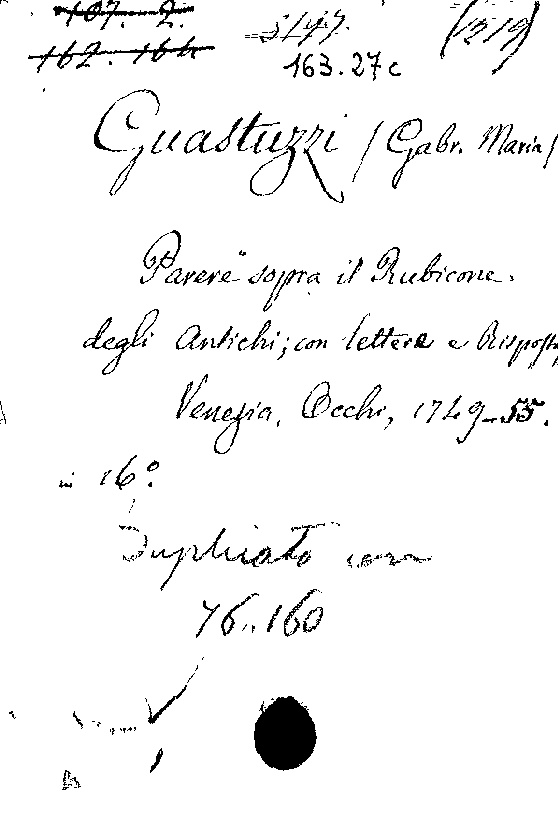 107. 2.
162. 164
5147. (1219)
163.27c
Guastuzzi (Gabr. Maria)
Parere sopra il Rubicone
degli Antichi; con lettere e Risposta
Venezia, Occhi, 1749-55.
in 16º.
Duplicato con
76..160